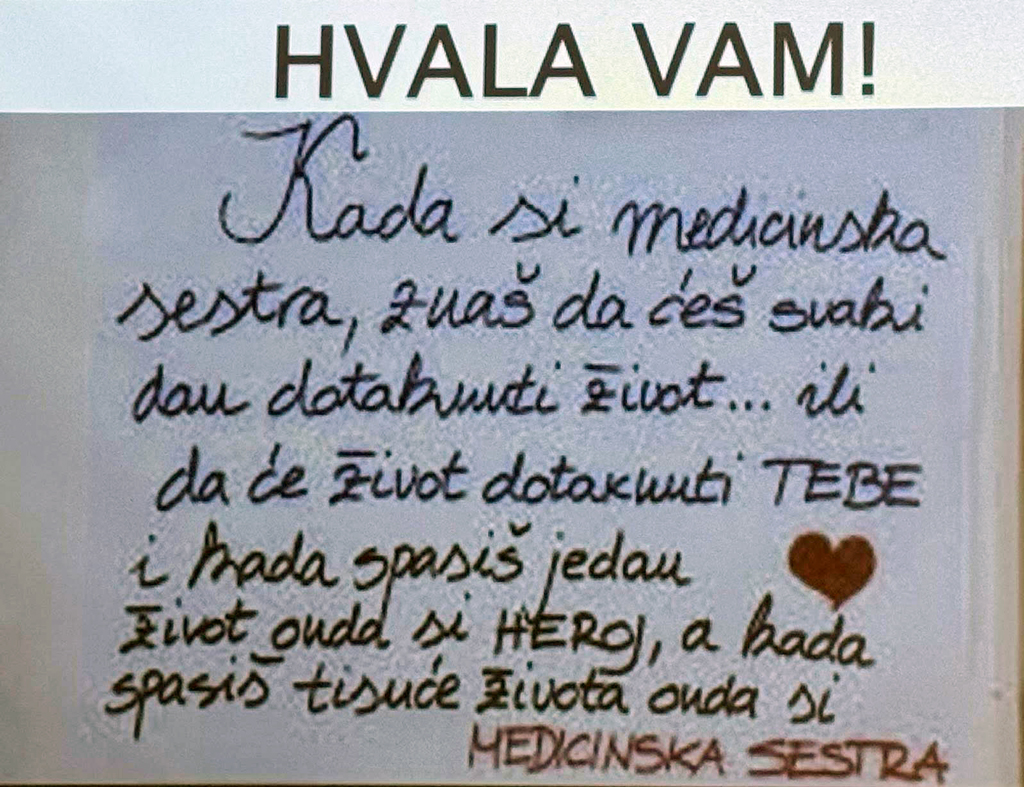 HVALA VAM!
Kada si medicinska
sestra, znaš da ćeš svaki
dan dotaknuti život... ili
da će život dotaknuti TEBE
i kada spasiš jedan
život onda si HEROJ, a kada
spasiš tisuće života onda si
MEDICINSKA SESTRA